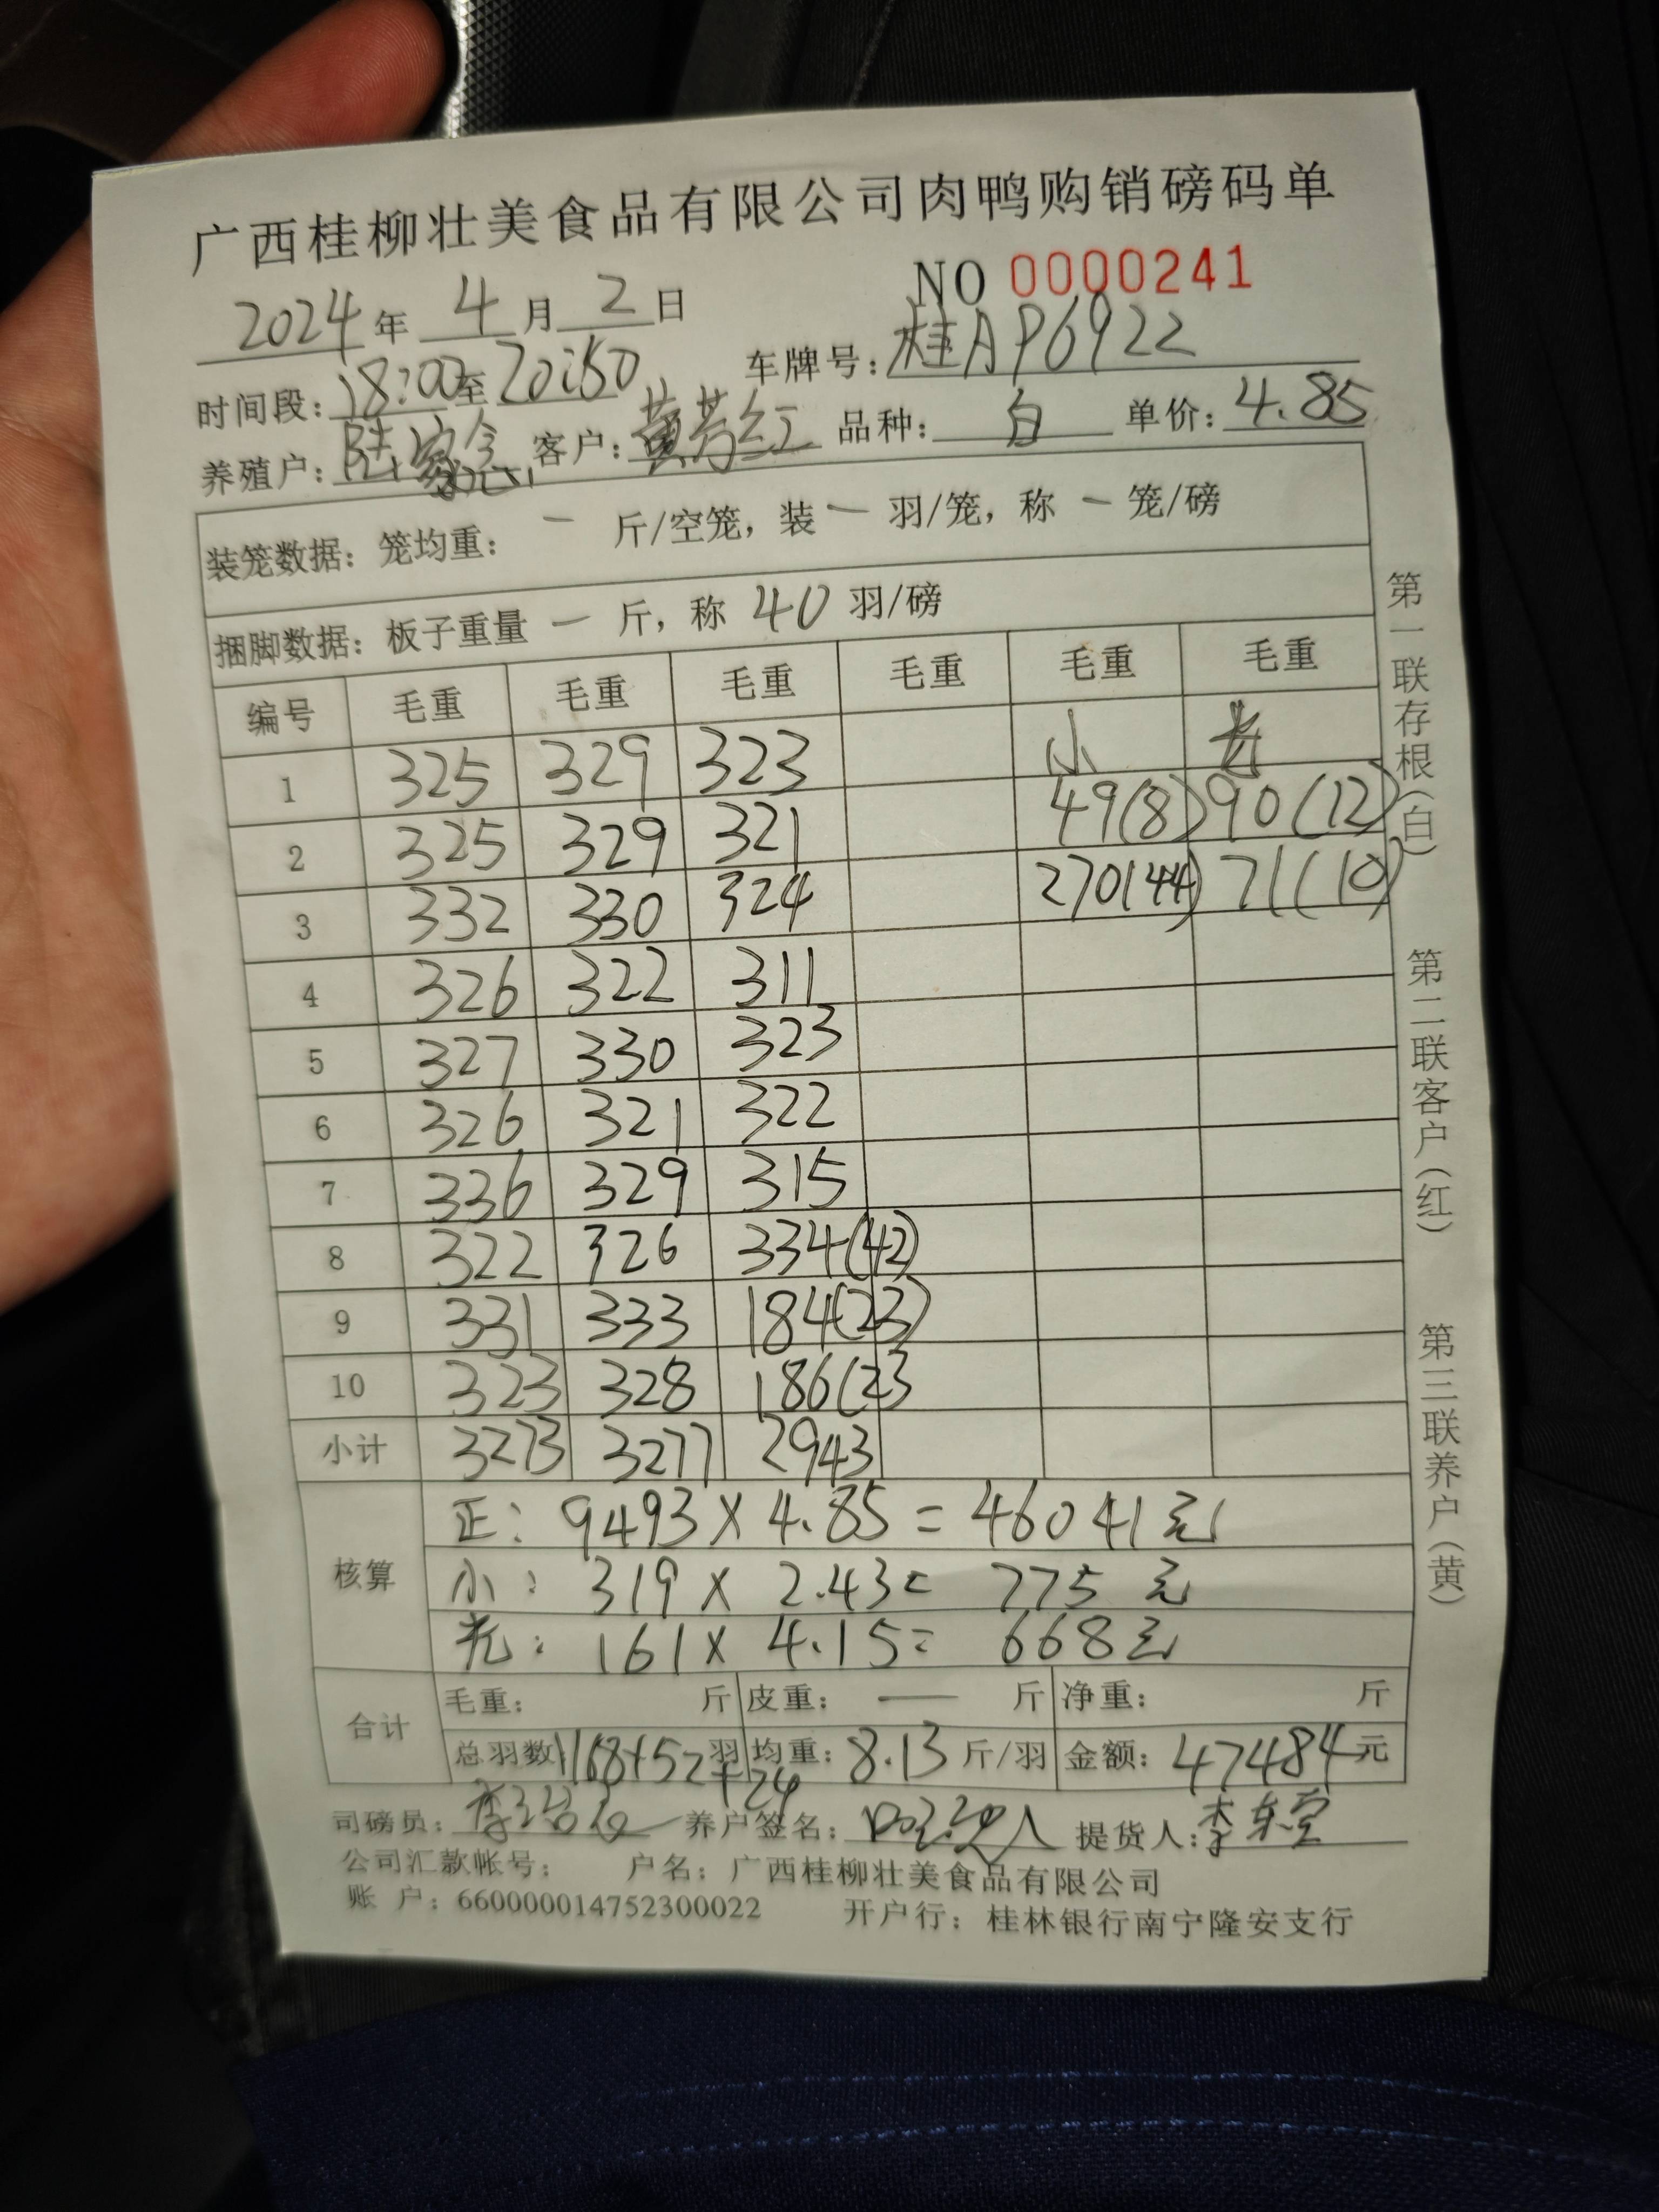 广西桂柳壮美食品有限公司肉鸭购销磅码单
NO 0000241
2024年 4月 2日
时间段：18:00至20:50 车牌号：桂AP6922
养殖户：陆 客户：黄芳红 品种：白 单价：4.85
装笼数据：笼均重：一 斤/空笼，装一 羽/笼，称 一 笼/磅
捆脚数据：板子重量 一 斤，称 40 羽/磅
编号 毛重 毛重 毛重 毛重 毛重 毛重
1 325 329 323 小 光
2 325 329 321 49(8) 90(12)
3 332 330 324 270(44) 71(10)
4 326 322 311
5 327 330 323
6 326 321 322
7 336 329 315
8 322 326 334(42)
9 331 333 184(23)
10 323 328 186(23
小计 3273 3277 2943
核算
正：9493×4.85=46041元
小：319×2.43=775元
光：161×4.15=668元
合计
毛重： 斤 皮重：— 斤 净重： 斤
总羽数：1168+52羽 均重：8.13斤/羽 金额：47484元
+24
司磅员：李 养户签名： 提货人：李东堂
公司汇款帐号： 户名：广西桂柳壮美食品有限公司
账 户：660000014752300022 开户行：桂林银行南宁隆安支行
第一联存根（白）
第二联客户（红）
第三联养户（黄）